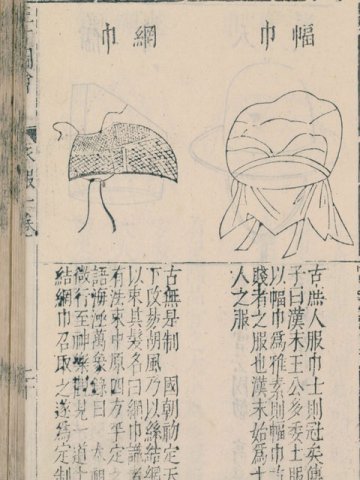 幅巾
古庶人服巾士則冠矣傅
子曰漢末王公多委王服
以幅巾爲雅素則幅巾古
賤者之服也漢末始爲士
人之服
網巾
古無是制 國朝初定天
下改易胡風乃以絲結網
以束其髮名曰網巾識者
有法束中原四方平定之
語海涵萬象錄曰 太祖
微行至神樂觀見一道士
結網巾召取之遂爲定制
圖會 衣服一卷